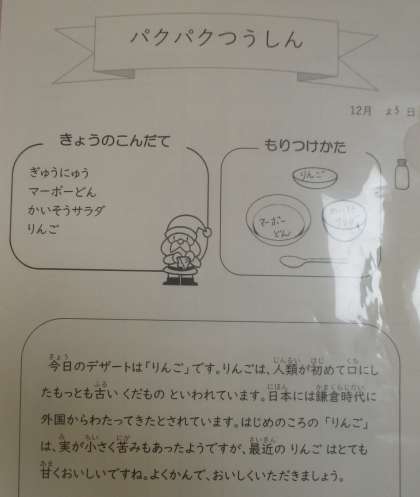 パクパクつうしん
12月
日
きょうのこんだて
もりつけかた
ぎゅうにゅう
マーボーどん
かいそうサラダ
りんご
りんご
マーボー
どん
今日のデザートは「りんご」です。りんごは、人類が初めて口にし
たもっとも古い くだもの といわれています。日本には鎌倉時代に
外国からわたってきたとされています。はじめのころの 「りんご」
は、実が小さく苦みもあったようですが、最近の りんご はとても
甘くおいしいですね。よくかんで、おいしくいただきましょう。